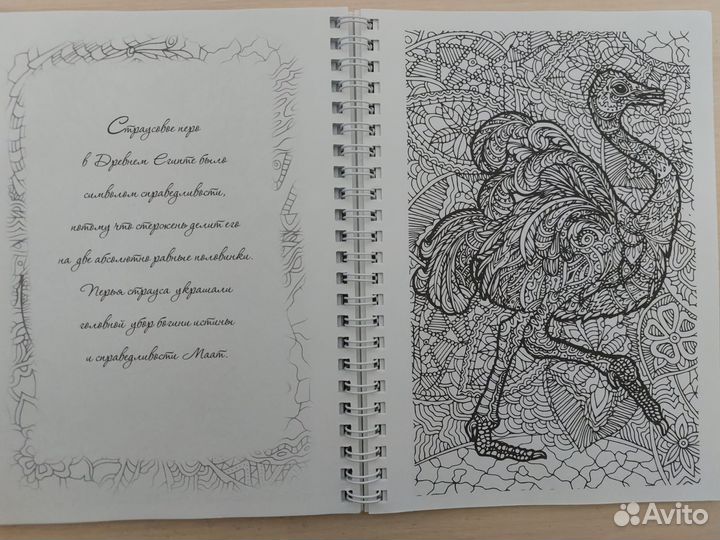 Страусовое перо
в Древнем Египте было
символом справедливости,
потому что стержень делит его
на две абсолютно равные половинки.
Перья страуса украшали
головной убор богини истины
и справедливости Маат.
Avito